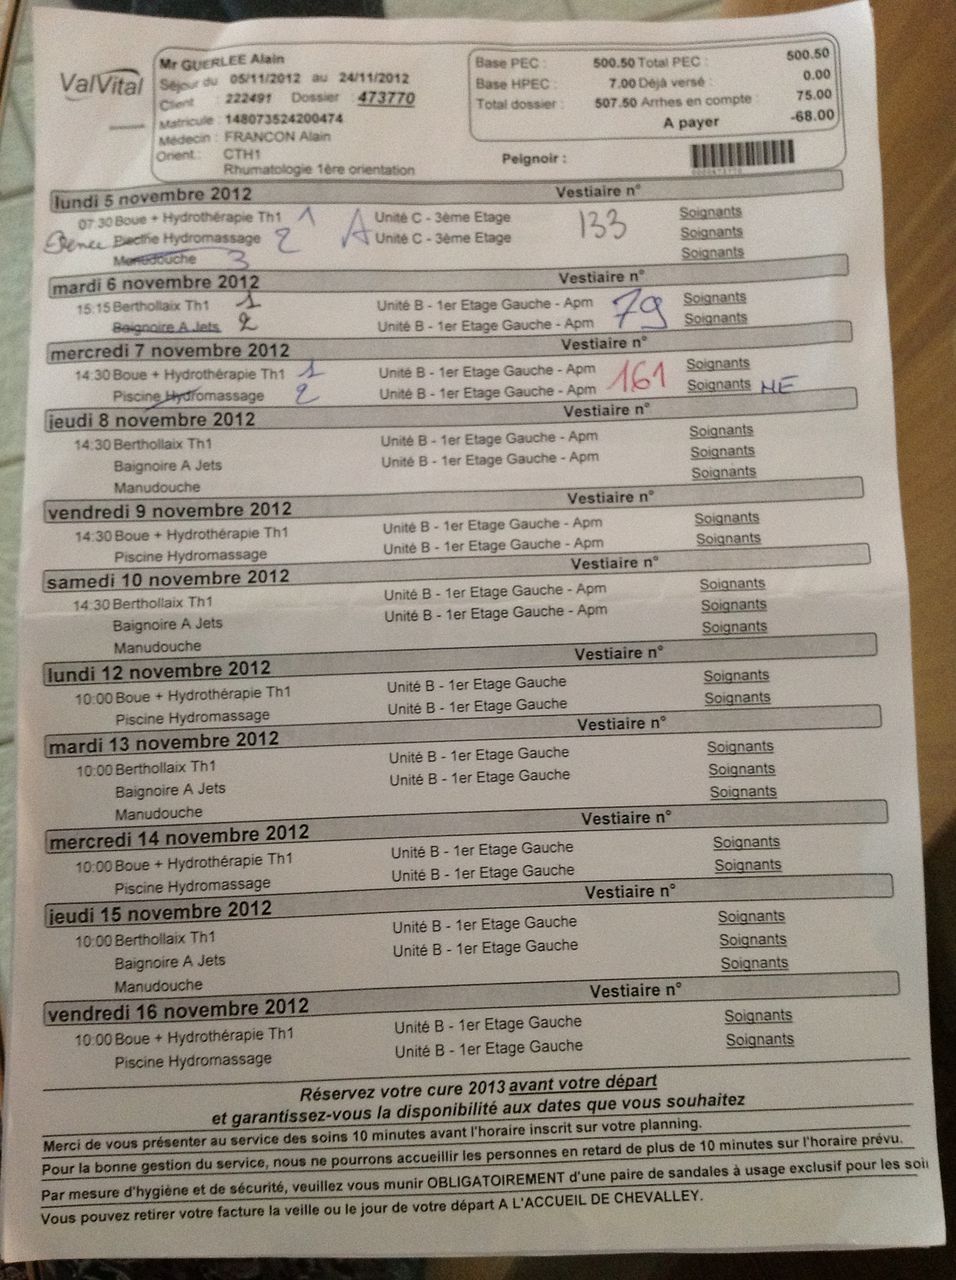 ValVital
Mr GUERLEE Alain
Séjour du 05/11/2012 au 24/11/2012
Client : 222491 Dossier 473770
Matricule : 148073524200474
Médecin : FRANCON Alain
Orient.: CTH1
Rhumatologie 1ère orientation
Base PEC: 500.50 Total PEC : 500.50
Base HPEC: 7.00 Déjà versé : 0.00
Total dossier : 507.50 Arrhes en compte : 75.00
A payer -68.00
Peignoir :
lundi 5 novembre 2012 Vestiaire n°
07:30 Boue + Hydrothérapie Th1 1 A Unité C - 3ème Etage 133 Soignants
Piscine Hydromassage 2 Unité C - 3ème Etage Soignants
Manudouche 3 Soignants
mardi 6 novembre 2012 Vestiaire n°
15:15 Berthollaix Th1 1 Unité B - 1er Etage Gauche - Apm 79 Soignants
Baignoire A Jets 2 Unité B - 1er Etage Gauche - Apm Soignants
mercredi 7 novembre 2012 Vestiaire n°
14:30 Boue + Hydrothérapie Th1 1 Unité B - 1er Etage Gauche - Apm 161 Soignants
Piscine Hydromassage 2 Unité B - 1er Etage Gauche - Apm Soignants NE
jeudi 8 novembre 2012 Vestiaire n°
14:30 Berthollaix Th1 Unité B - 1er Etage Gauche - Apm Soignants
Baignoire A Jets Unité B - 1er Etage Gauche - Apm Soignants
Manudouche Soignants
vendredi 9 novembre 2012 Vestiaire n°
14:30 Boue + Hydrothérapie Th1 Unité B - 1er Etage Gauche - Apm Soignants
Piscine Hydromassage Unité B - 1er Etage Gauche - Apm Soignants
samedi 10 novembre 2012 Vestiaire n°
14:30 Berthollaix Th1 Unité B - 1er Etage Gauche - Apm Soignants
Baignoire A Jets Unité B - 1er Etage Gauche - Apm Soignants
Manudouche Soignants
lundi 12 novembre 2012 Vestiaire n°
10:00 Boue + Hydrothérapie Th1 Unité B - 1er Etage Gauche Soignants
Piscine Hydromassage Unité B - 1er Etage Gauche Soignants
mardi 13 novembre 2012 Vestiaire n°
10:00 Berthollaix Th1 Unité B - 1er Etage Gauche Soignants
Baignoire A Jets Unité B - 1er Etage Gauche Soignants
Manudouche Soignants
mercredi 14 novembre 2012 Vestiaire n°
10:00 Boue + Hydrothérapie Th1 Unité B - 1er Etage Gauche Soignants
Piscine Hydromassage Unité B - 1er Etage Gauche Soignants
jeudi 15 novembre 2012 Vestiaire n°
10:00 Berthollaix Th1 Unité B - 1er Etage Gauche Soignants
Baignoire A Jets Unité B - 1er Etage Gauche Soignants
Manudouche Soignants
vendredi 16 novembre 2012 Vestiaire n°
10:00 Boue + Hydrothérapie Th1 Unité B - 1er Etage Gauche Soignants
Piscine Hydromassage Unité B - 1er Etage Gauche Soignants
Réservez votre cure 2013 avant votre départ
et garantissez-vous la disponibilité aux dates que vous souhaitez
Merci de vous présenter au service des soins 10 minutes avant l'horaire inscrit sur votre planning.
Pour la bonne gestion du service, nous ne pourrons accueillir les personnes en retard de plus de 10 minutes sur l'horaire prévu.
Par mesure d'hygiène et de sécurité, veuillez vous munir OBLIGATOIREMENT d'une paire de sandales à usage exclusif pour les soi
Vous pouvez retirer votre facture la veille ou le jour de votre départ A L'ACCUEIL DE CHEVALLEY.